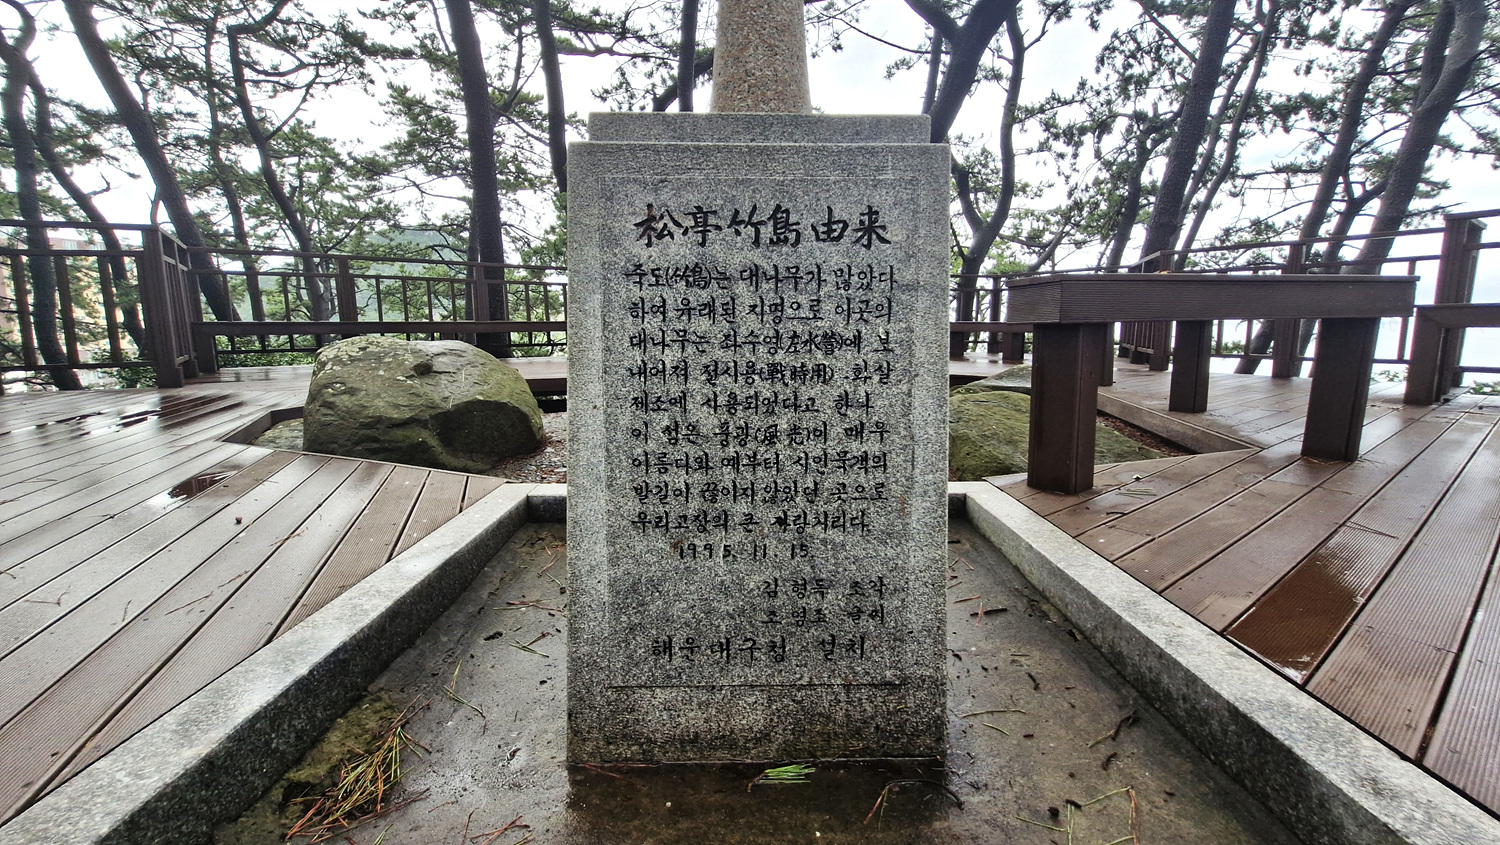 松亭竹島由来
죽도(竹島)는 대나무가 많았다
하여 유래된 지명으로 이곳의
대나무는 좌수영(左水營)에 보
내어져 전시용(戰時用) 화살
제조에 사용되었다고 한다
이 섬은 풍광(風光)이 매우
아름다와 예부터 시인묵객의
발길이 끊이지 않았던 곳으로
우리고장의 큰 자랑거리다.
1995. 11. 15.
김형두 조각
조영조 글씨
해운대구청 설치